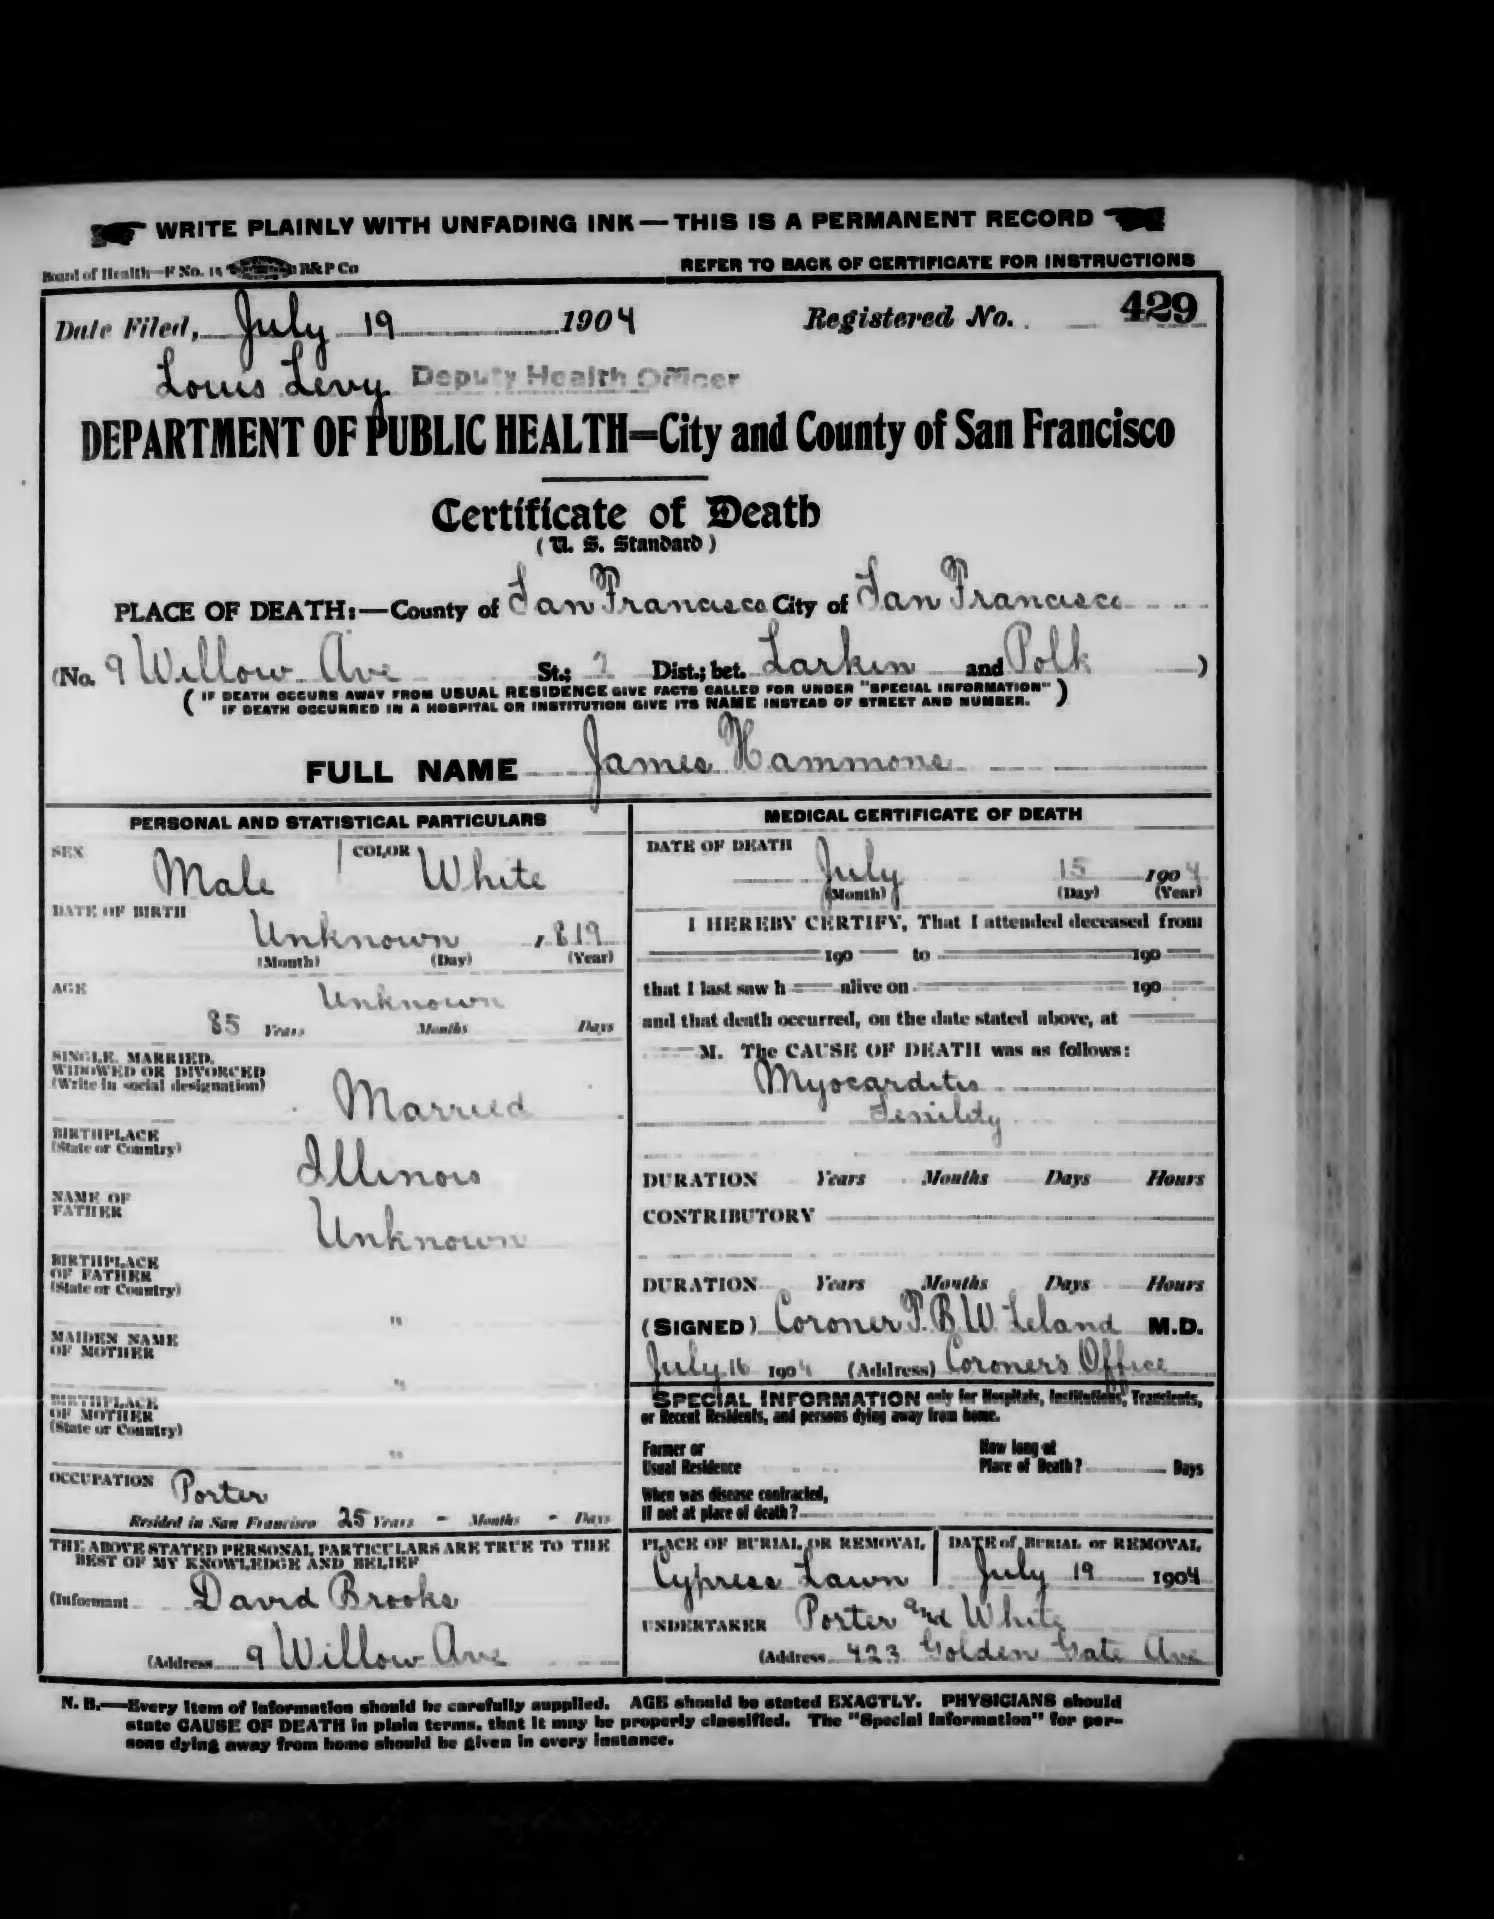 WRITE PLAINLY WITH UNFADING INK — THIS IS A PERMANENT RECORD
Board of Health—F No. 15 B&P Co REFER TO BACK OF CERTIFICATE FOR INSTRUCTIONS
Date Filed, July 19 1904 Registered No. 429
Louis Levy Deputy Health Officer
DEPARTMENT OF PUBLIC HEALTH=City and County of San Francisco
Certificate of Death
(U. S. Standard)
PLACE OF DEATH:—County of San Francisco City of San Francisco
(No. 9 Willow Ave St.; Dist.; bet. Larkin and Polk )
( IF DEATH OCCURS AWAY FROM USUAL RESIDENCE GIVE FACTS CALLED FOR UNDER "SPECIAL INFORMATION" )
( IF DEATH OCCURRED IN A HOSPITAL OR INSTITUTION GIVE ITS NAME INSTEAD OF STREET AND NUMBER. )
FULL NAME James Hammons
PERSONAL AND STATISTICAL PARTICULARS
SEX Male COLOR White
DATE OF BIRTH
Unknown , 819
(Month) (Day) (Year)
AGE Unknown
85 Years Months Days
SINGLE, MARRIED,
WIDOWED OR DIVORCED
(Write in social designation) Married
BIRTHPLACE
(State or Country) Illinois
NAME OF
FATHER Unknown
BIRTHPLACE
OF FATHER
(State or Country) "
MAIDEN NAME
OF MOTHER "
BIRTHPLACE
OF MOTHER
(State or Country) "
OCCUPATION Porter
Resided in San Francisco 25 Years - Months - Days
THE ABOVE STATED PERSONAL PARTICULARS ARE TRUE TO THE
BEST OF MY KNOWLEDGE AND BELIEF
(Informant David Brooks
(Address 9 Willow Ave
MEDICAL CERTIFICATE OF DEATH
DATE OF DEATH
July 15 1904
(Month) (Day) (Year)
I HEREBY CERTIFY, That I attended deceased from
190 to 190
that I last saw h alive on 190
and that death occurred, on the date stated above, at
M. The CAUSE OF DEATH was as follows:
Myocarditis
Senility
DURATION Years Months Days Hours
CONTRIBUTORY
DURATION Years Months Days Hours
(SIGNED) Coroner T. B. W. Leland M.D.
July 16 1904 (Address) Coroner's Office
SPECIAL INFORMATION only for Hospitals, Institutions, Transients,
or Recent Residents, and persons dying away from home.
Former or
Usual Residence
How long at
Place of Death? Days
When was disease contracted,
If not at place of death?
PLACE OF BURIAL OR REMOVAL
Cypress Lawn
DATE of BURIAL or REMOVAL
July 19 1904
UNDERTAKER Porter and White
(Address 423 Golden Gate Ave
N. B.—Every item of information should be carefully supplied. AGE should be stated EXACTLY. PHYSICIANS should
state CAUSE OF DEATH in plain terms, that it may be properly classified. The "Special Information" for per-
sons dying away from home should be given in every instance.